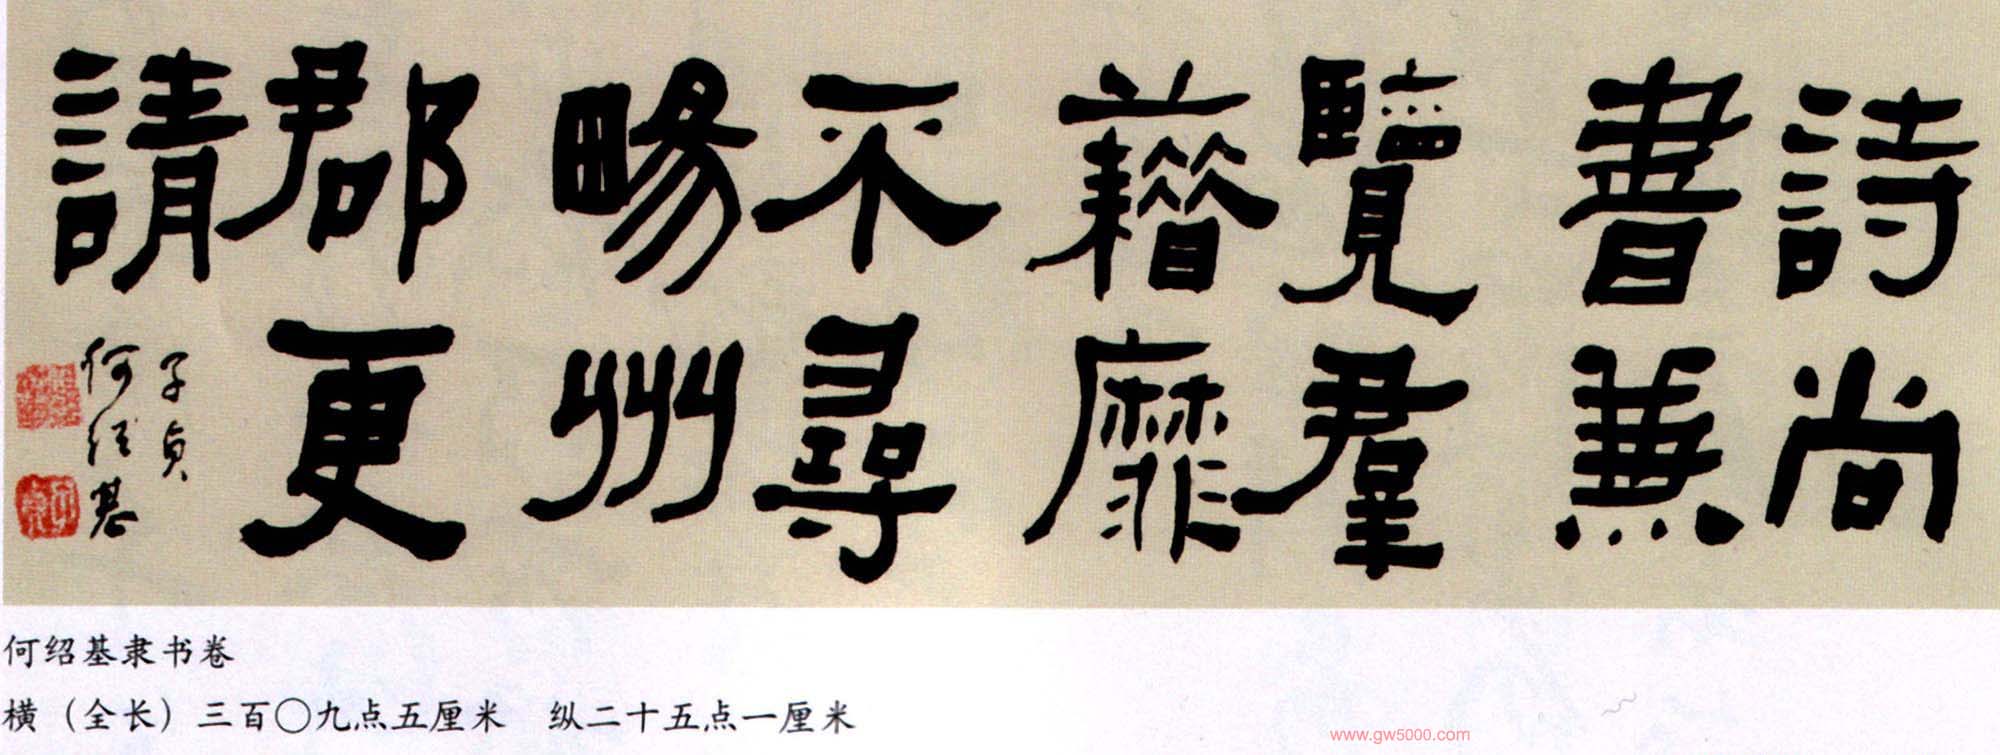 詩尚
書兼
覽羣
藉靡
不尋
畼州
郡更
請
子貞
何紹基
何绍基隶书卷
横（全长）三百〇九点五厘米　纵二十五点一厘米
www.gw5000.com